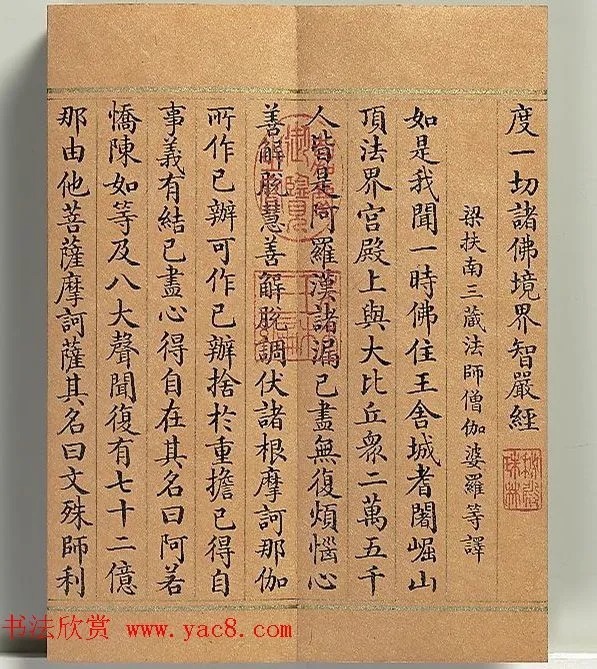 度一切諸佛境界智嚴經
梁扶南三藏法師僧伽婆羅等譯
如是我聞一時佛住王舍城耆闍崛山
頂法界宮殿上與大比丘眾二萬五千
人皆是阿羅漢諸漏已盡無復煩惱心
善解脫慧善解脫調伏諸根摩訶那伽
所作已辦可作已辦捨於重擔已得自
事義有結已盡心得自在其名曰阿若
憍陳如等及八大聲聞復有七十二億
那由他菩薩摩訶薩其名曰文殊師利
秘殿
珠林
书法欣赏 www.yac8.com